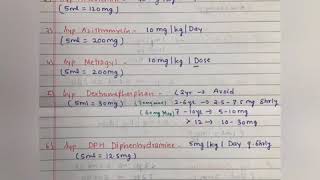 (5ml = 120mg)
3) Syp Azithromycin - 10mg|kg|Day
(5ml = 200mg)
4) Syp Metrogyl - 10mg|kg|Dose
(5ml = 200mg)
5) Syp Dextromethorphan - <2yr → Avoid
(5ml = 30mg) 2-6yr → 2.5-7.5mg 8hrly
7-12yr → 5-10mg
>12 → 10-30mg
6) Syp DPH Diphenhydramine - 5mg|kg|Day 6hrly
(5ml = 12.5mg)